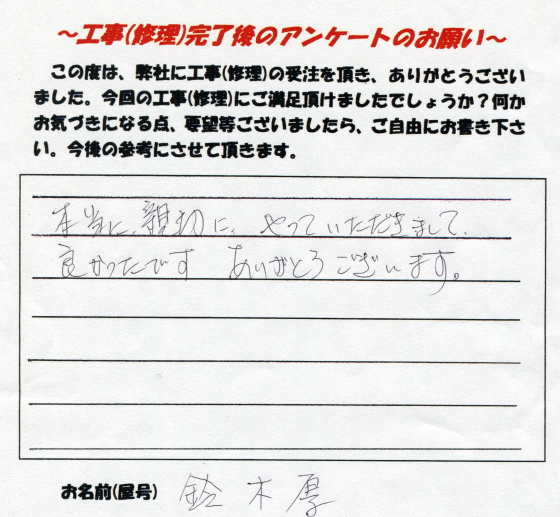 ～工事(修理)完了後のアンケートのお願い～
この度は、弊社に工事(修理)の受注を頂き、ありがとうござい
ました。今回の工事(修理)にご満足頂けましたでしょうか？何か
お気づきになる点、要望等ございましたら、ご自由にお書き下さ
い。今後の参考にさせて頂きます。
本当に、親切に、やっていただきまして、
良かったです ありがとうございます。
お名前(屋号) 鈴木厚